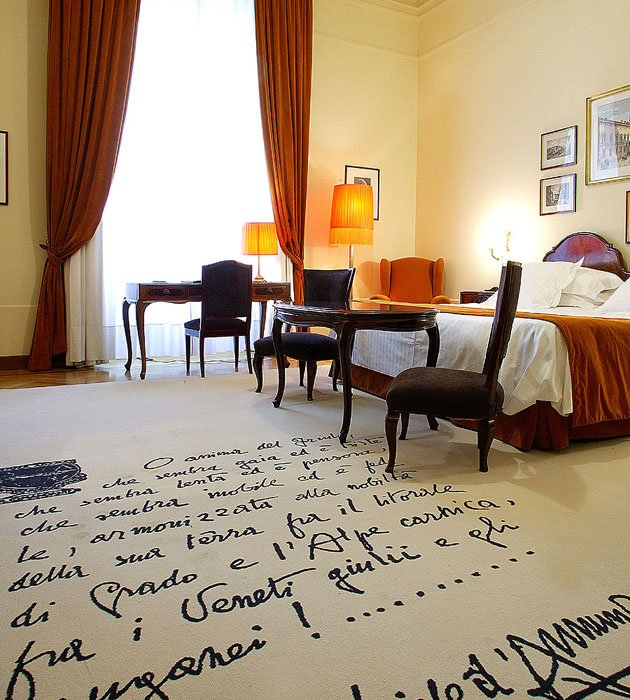 O anima del friuli,
che sembra gaia ed è forte
che sembra lenta ed è pensosa,
che sembra mobile ed è fed
le, armonizzata alla nobiltà
della sua terra fra il litorale
di Grado e l'Alpe carnica,
fra i Veneti giulii e gli
uganei !...........
iele d'Annun